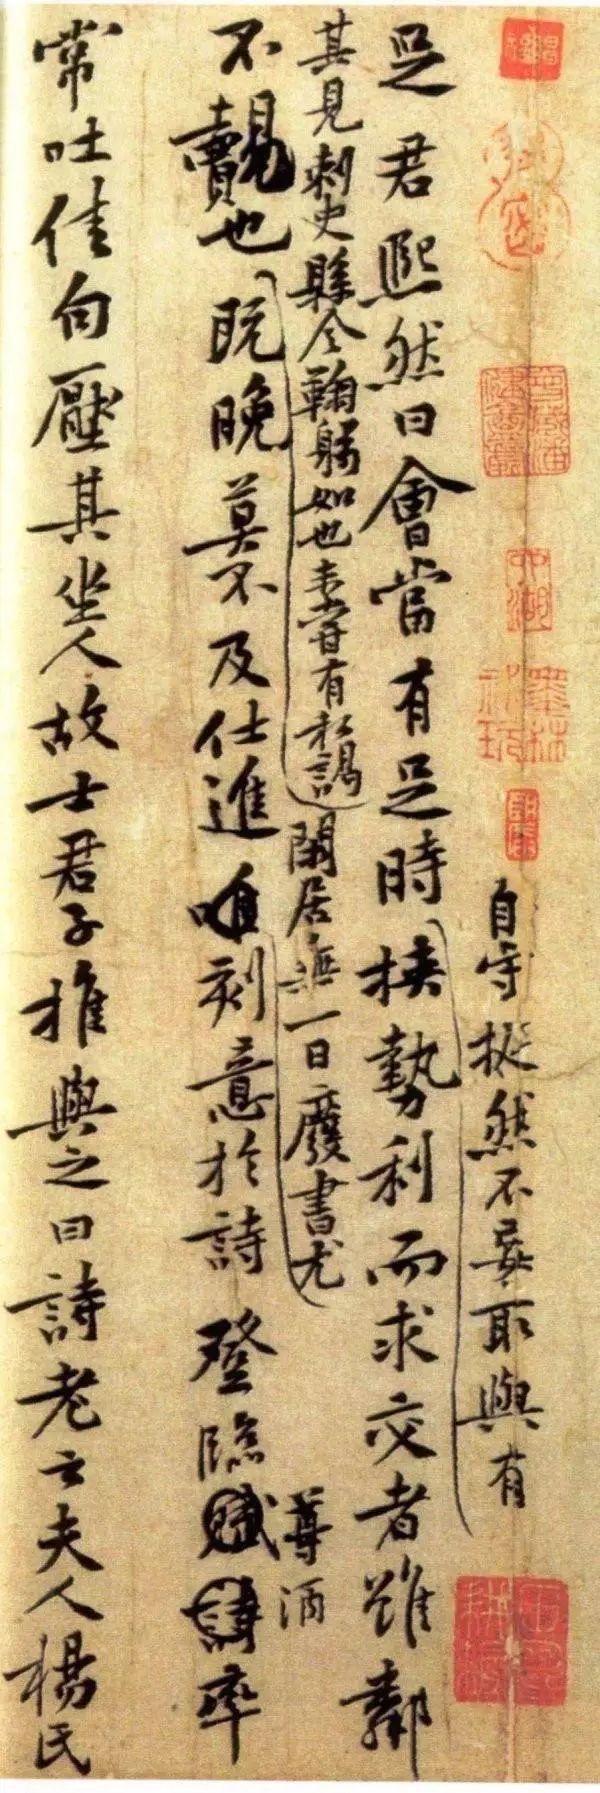 自守挺然不妄取與有
足君熙然曰會當有足時挾勢利而求交者雖鄰
其見刺史縣令鞠躬如也未嘗有私謁閑居無一日廢書尤尊酒
不覿也既晚莫不及仕進唯刻意於詩登臨賦詩率
常吐佳句壓其坐人故士君子推與之曰詩老云夫人楊氏